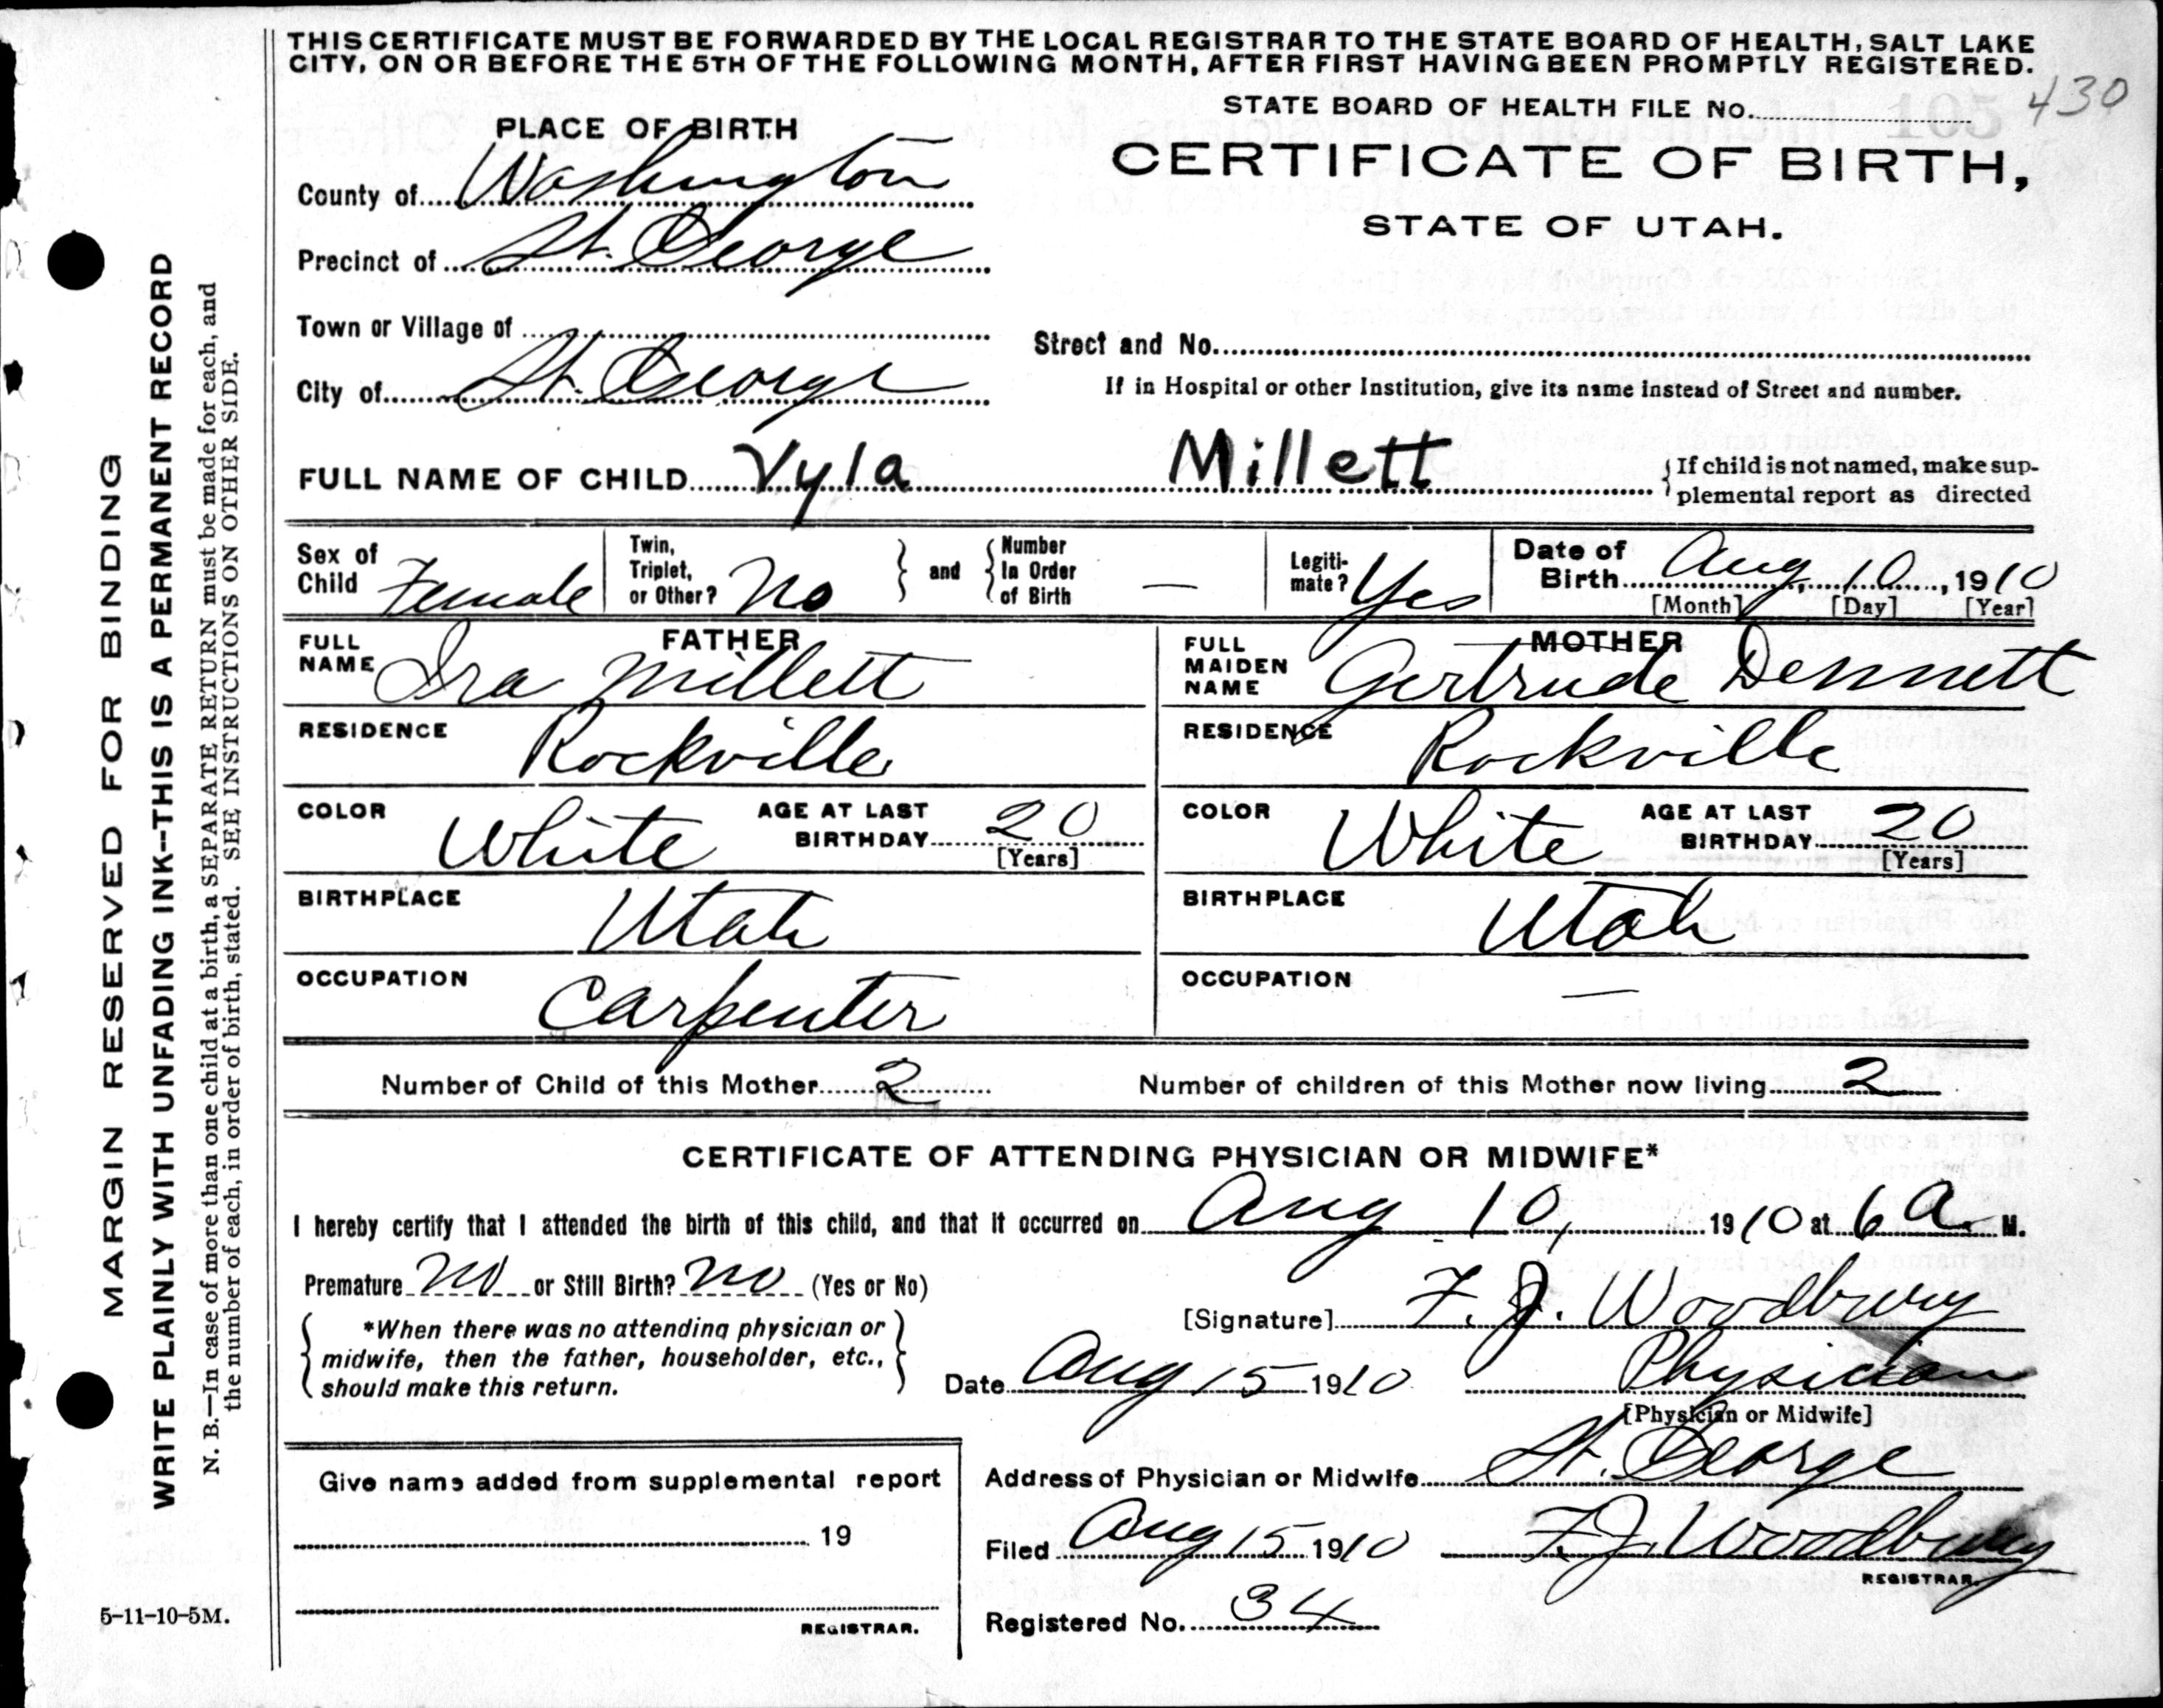 THIS CERTIFICATE MUST BE FORWARDED BY THE LOCAL REGISTRAR TO THE STATE BOARD OF HEALTH, SALT LAKE
CITY, ON OR BEFORE THE 5TH OF THE FOLLOWING MONTH, AFTER FIRST HAVING BEEN PROMPTLY REGISTERED.
STATE BOARD OF HEALTH FILE No. 430
PLACE OF BIRTH
CERTIFICATE OF BIRTH,
STATE OF UTAH.
County of Washington
Precinct of St. George
Town or Village of
Street and No.
City of St. George
If in Hospital or other Institution, give its name instead of Street and number.
FULL NAME OF CHILD Vyla Millett
If child is not named, make sup-
plemental report as directed
Sex of
Child Female
Twin,
Triplet,
or Other? No
and
Number
In Order
of Birth —
Legiti-
mate? Yes
Date of
Birth Aug, 10, 1910
[Month] [Day] [Year]
FATHER
FULL
NAME Ira Millett
MOTHER
FULL
MAIDEN
NAME Gertrude Dennett
RESIDENCE Rockville
RESIDENCE Rockville
COLOR White
AGE AT LAST
BIRTHDAY 20
[Years]
COLOR White
AGE AT LAST
BIRTHDAY 20
[Years]
BIRTHPLACE Utah
BIRTHPLACE Utah
OCCUPATION Carpenter
OCCUPATION —
Number of Child of this Mother 2
Number of children of this Mother now living 2
CERTIFICATE OF ATTENDING PHYSICIAN OR MIDWIFE*
I hereby certify that I attended the birth of this child, and that it occurred on Aug 10, 1910 at 6 A. M.
Premature No or Still Birth? No (Yes or No)
[Signature] F. J. Woodbury
*When there was no attending physician or
midwife, then the father, householder, etc.,
should make this return.
Date Aug 15 1910
Physician
[Physician or Midwife]
Give name added from supplemental report
19
REGISTRAR.
Address of Physician or Midwife St. George
Filed Aug 15 1910 F. J. Woodbury
REGISTRAR.
Registered No. 34
5-11-10-5M.
MARGIN RESERVED FOR BINDING
WRITE PLAINLY WITH UNFADING INK--THIS IS A PERMANENT RECORD
N. B.—In case of more than one child at a birth, a SEPARATE RETURN must be made for each, and
the number of each, in order of birth, stated. SEE INSTRUCTIONS ON OTHER SIDE.